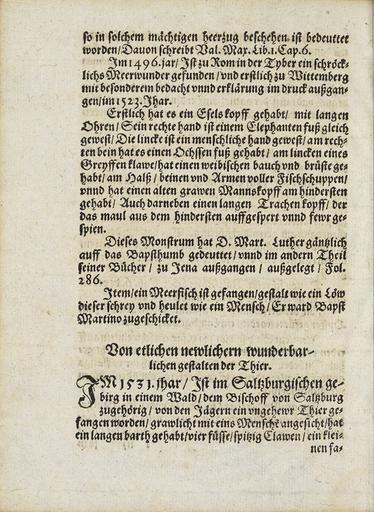 so in solchem mächtigen heerzug beschehen ist bedeuttet
worden/Dauon schreibt Val. Max. Lib.1. Cap.6.
Im 1496. jar/ Ist zu Rom in der Tyber ein schröck⸗
lichs Meerwunder gefunden/ vnd erstlich zu Wittemberg
mit besonderem bedacht vnnd erklärung im druck außgan⸗
gen/im 1523. Jhar.
Erstlich hat es ein Esels kopff gehabt/ mit langen
Ohren/ Sein rechte hand ist einem Elephanten fuß gleich
gewest/ Die lincke ist ein menschliche hand gewest/ am rech⸗
ten bein hat es einen Ochssen fuß gehabt/ am lincken eines
Greyffen klawe/hat einen weibischen bauch vnd brüste ge⸗
habt/ am Halß/ beinen vnd Armen voller Fischschuppen/
vnnd hat einen alten grawen Mannskopff am hindersten
gehabt/ Auch darneben einen langen Trachen kopff/ der
das maul aus dem hindersten auffgespert vnnd fewr ge⸗
spien.
Dieses Monstrum hat D. Mart. Luther gäntzlich
auff das Bapsthumb gedeuttet/vnnd im andern Theil
seiner Bücher/ zu Jena außgangen/ außgelegt/ Fol.
286.
Item/ein Meerfisch ist gefangen/gestalt wie ein Löw
dieser schrey vnd heulet wie ein Mensch/ Er ward Bapst
Martino zugeschicket.
Von etlichen newlichern wunderbar⸗
lichen gestalten der Thier.
IM 1531. jhar/ Ist im Saltzburgischen ge⸗
birg in einem Wald/ dem Bischoff von Saltzburg
zugehörig/ von den Jägern ein vngehewr Thier ge⸗
fangen worden/ grawlicht mit eins Menschẽ angesicht/hat
ein langen barth gehabt/vier füsse/ spitzig Clawen/ ein klei⸗
nen fa⸗